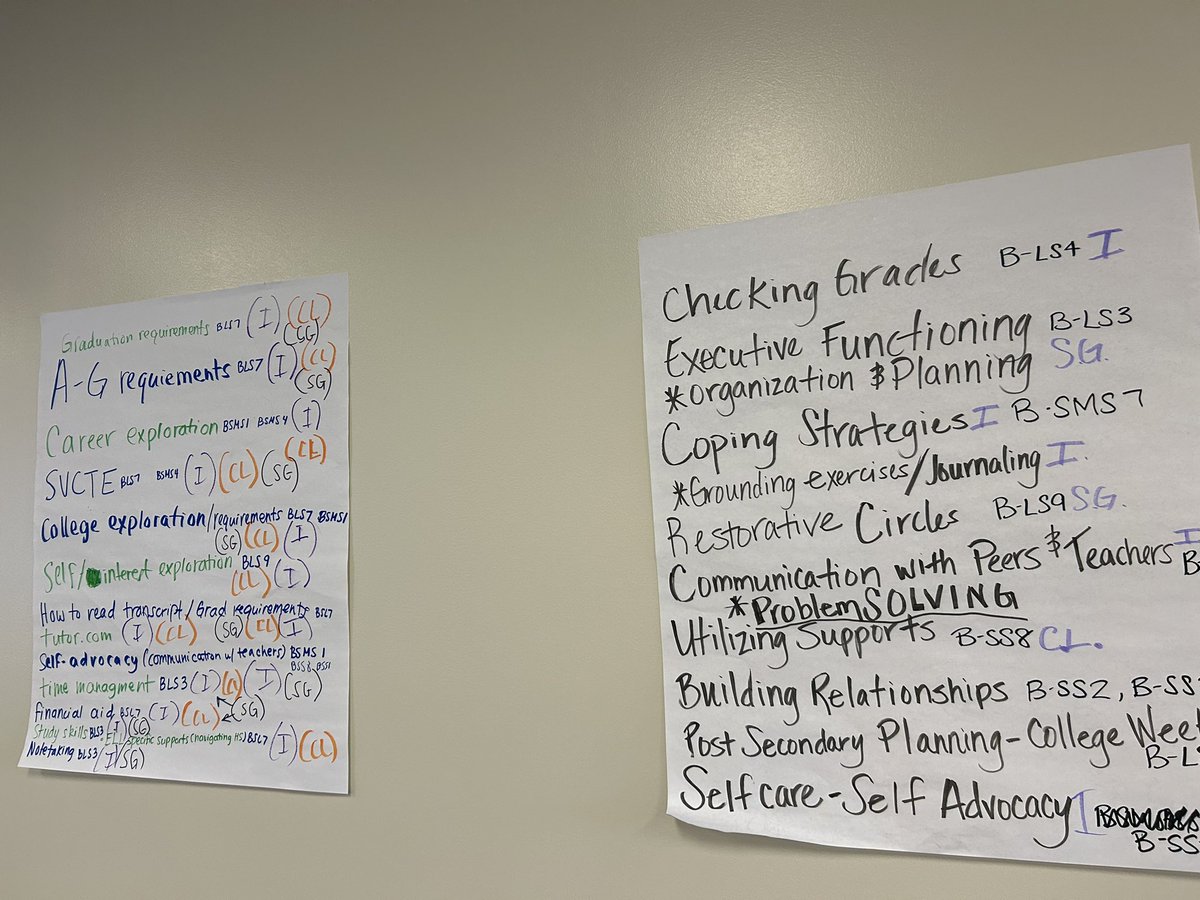 Graduation requirements BLS7 (I) (CL)
(SG)
A-G requiements BLS7 (I) (CL)
(SG)
Career exploration BSMS1 BSMS4 (I)
(CL)
SVCTE BLS7 BSMS4 (I) (CL) (SG)
College exploration/requirements BLS7 BSMS1
(SG) (CL) (I)
Self/interest exploration BLS9
(CL) (I)
How to read transcript/Grad requirements BLS7
tutor.com (I) (CL) (SG) (CL) (I)
Self-advocacy (communication w/ teachers) BSMS 1
BSS8
time managment BLS3 (I) (CL) (I) (SG)
Financial aid BLS7 (I) (CL) (SG)
Study skills BLS3 (I) (SG)
specific supports (navigating HS) BLS7 (I) (CL)
Notetaking BLS3 (I) (SG)
Checking Grades B-LS4 I
Executive Functioning B-LS3
*organization & Planning SG.
Coping Strategies I B-SMS7
*Grounding exercises/Journaling I.
Restorative Circles B-LS9 SG.
Communication with Peers & Teachers I
B
*Problem SOLVING
Utilizing Supports B-SS8 CL.
Building Relationships B-SS2, B-SS
Post Secondary Planning-College Wee
B-L
Selfcare-Self Advocacy I
B-SS